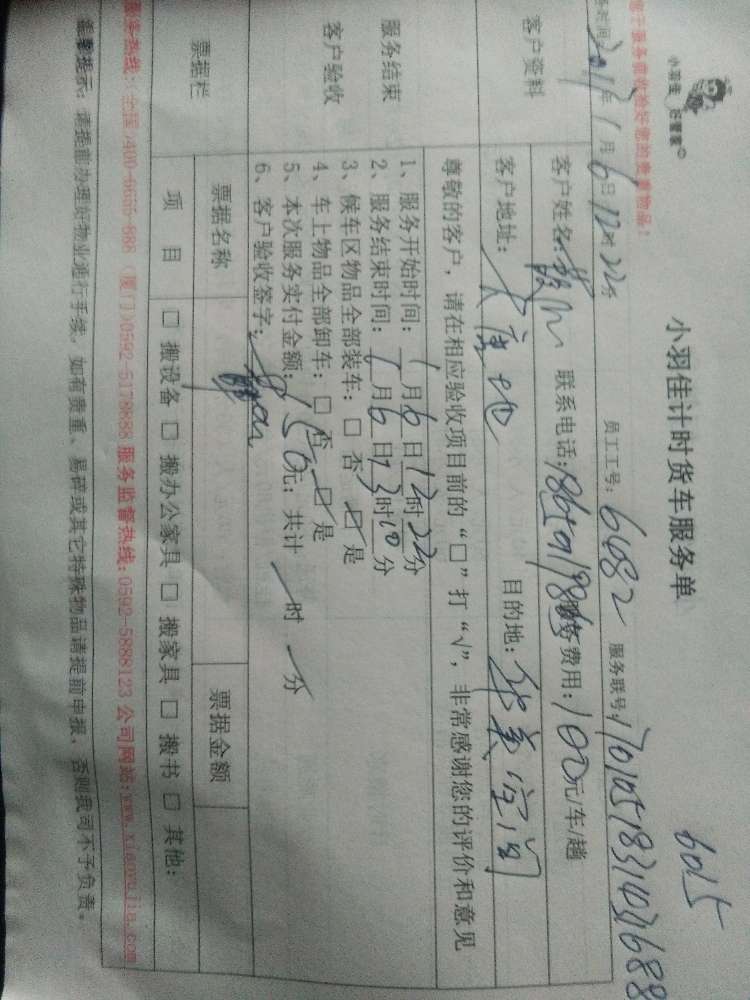 小羽佳 好管家
小羽佳计时货车服务单
6015
员工工号: 6682 服务联号: 170105183403688
2017年1月6日12时22分
客户资料
客户姓名: 联系电话: 服务费用: 100元/车/趟
客户地址: 目的地: 华美空间
尊敬的客户，请在相应验收项目前的“□”打“√”，非常感谢您的评价和意见
服务结束
客户验收
1、服务开始时间: 1月6日12时22分
2、服务结束时间: 1月6日13时10分
3、候车区物品全部装车: □ 否 ☑ 是
4、车上物品全部卸车: □ 否 ☑ 是
5、本次服务实付金额: 150元; 共计 时 分
6、客户验收签字:
票据栏
票据名称 票据金额
项 目 □ 搬设备 □ 搬办公家具 □ 搬家具 □ 搬书 □ 其他:
服务热线: 全国)400-6655-888 (厦门)0592-5179888 服务监督热线: 0592-5888123 公司网站: www.xiaoyujia.com
重要提示: 请提前办理好物业通行手续。如有贵重、易碎或其它特殊物品请提前申报，否则我司不予负责。